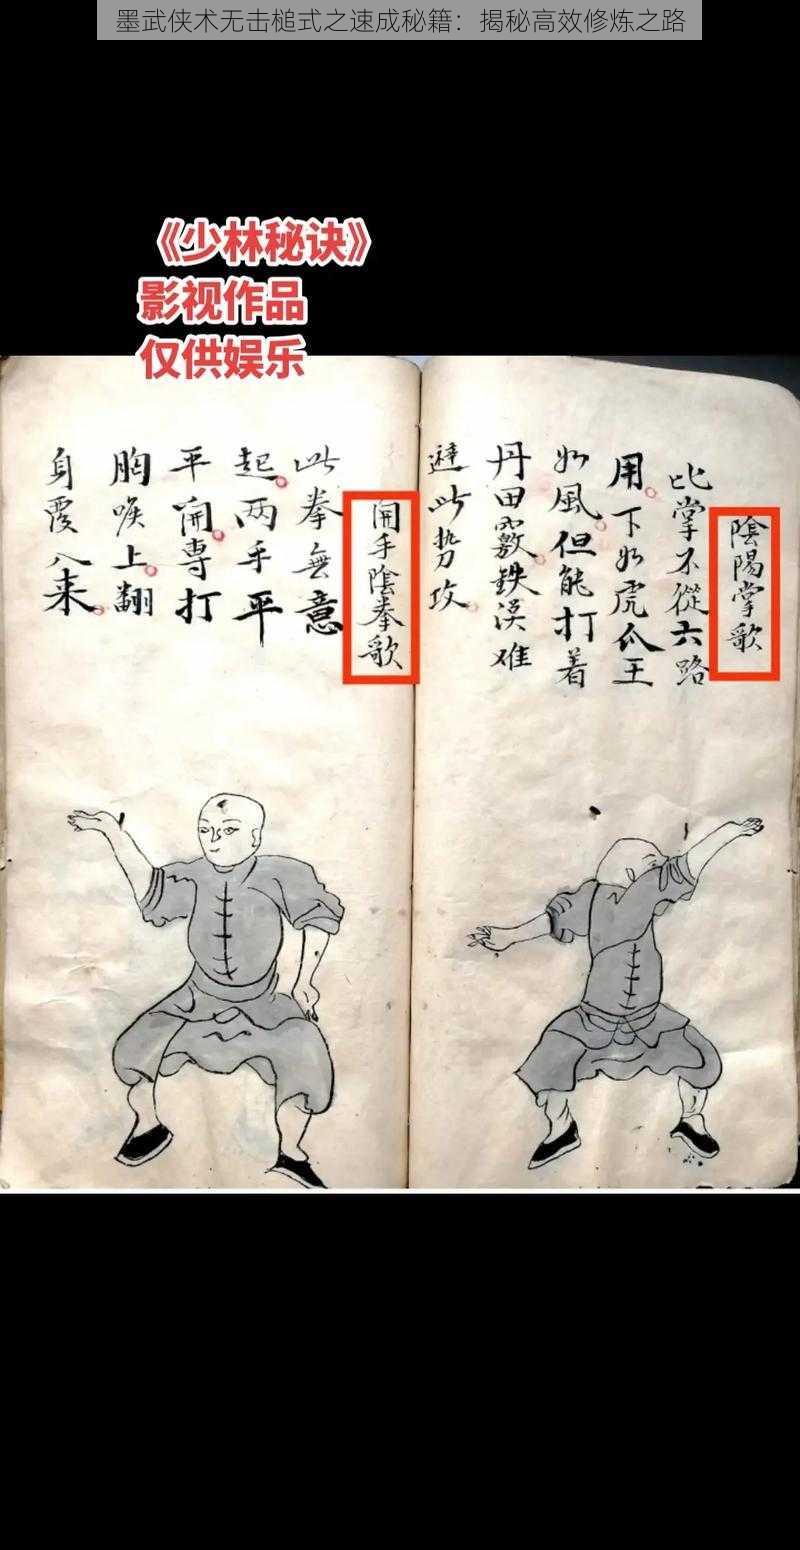 墨武侠术无击槌式之速成秘籍：揭秘高效修炼之路
《少林秘诀》
影视作品
仅供娱乐
陰陽掌歌
比掌不從六路
用下如虎爪王
如風但能打着
丹田竅鉄漢难
避此势攻
開手陰拳歌
此拳無意
起两手平
平開專打
胸喉上翻
身覆入来